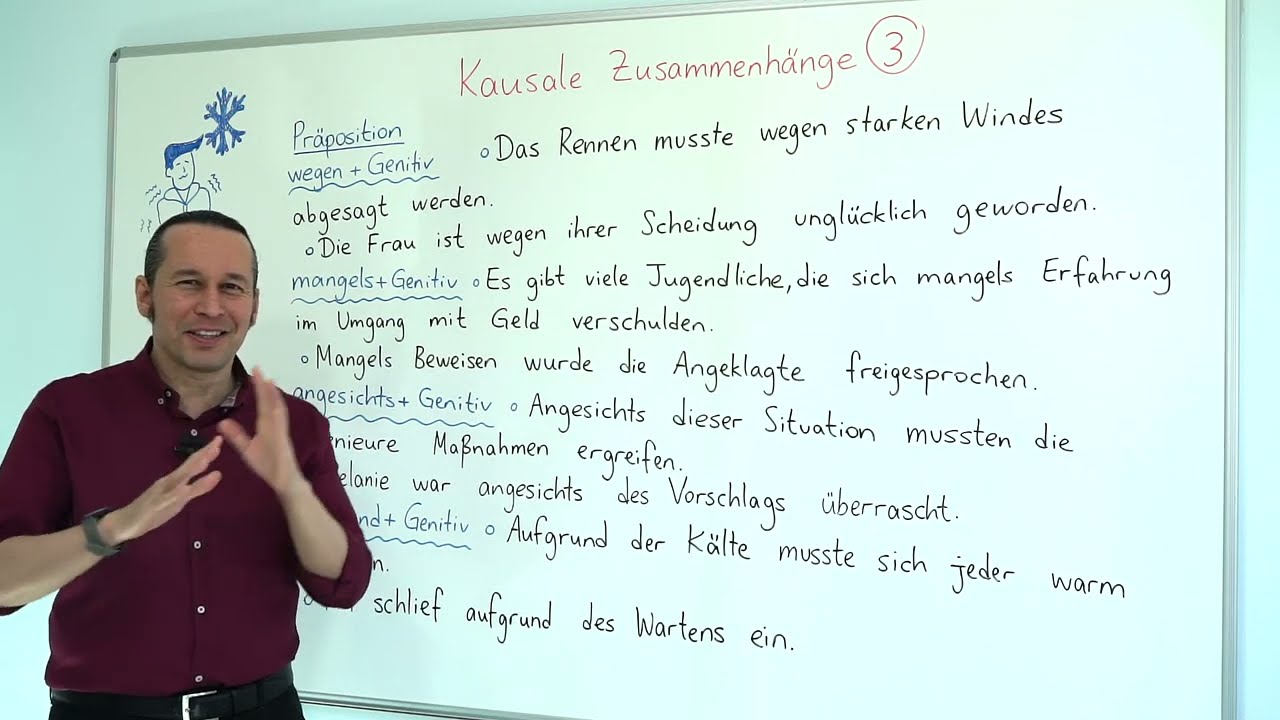 Kausale Zusammenhänge 3
Präposition
wegen + Genitiv ∘ Das Rennen musste wegen starken Windes
abgesagt werden.
∘ Die Frau ist wegen ihrer Scheidung unglücklich geworden.
mangels + Genitiv ∘ Es gibt viele Jugendliche, die sich mangels Erfahrung
im Umgang mit Geld verschulden.
∘ Mangels Beweisen wurde die Angeklagte freigesprochen.
angesichts + Genitiv ∘ Angesichts dieser Situation mussten die
nieure Maßnahmen ergreifen.
elanie war angesichts des Vorschlags überrascht.
nd + Genitiv ∘ Aufgrund der Kälte musste sich jeder warm
n.
schlief aufgrund des Wartens ein.